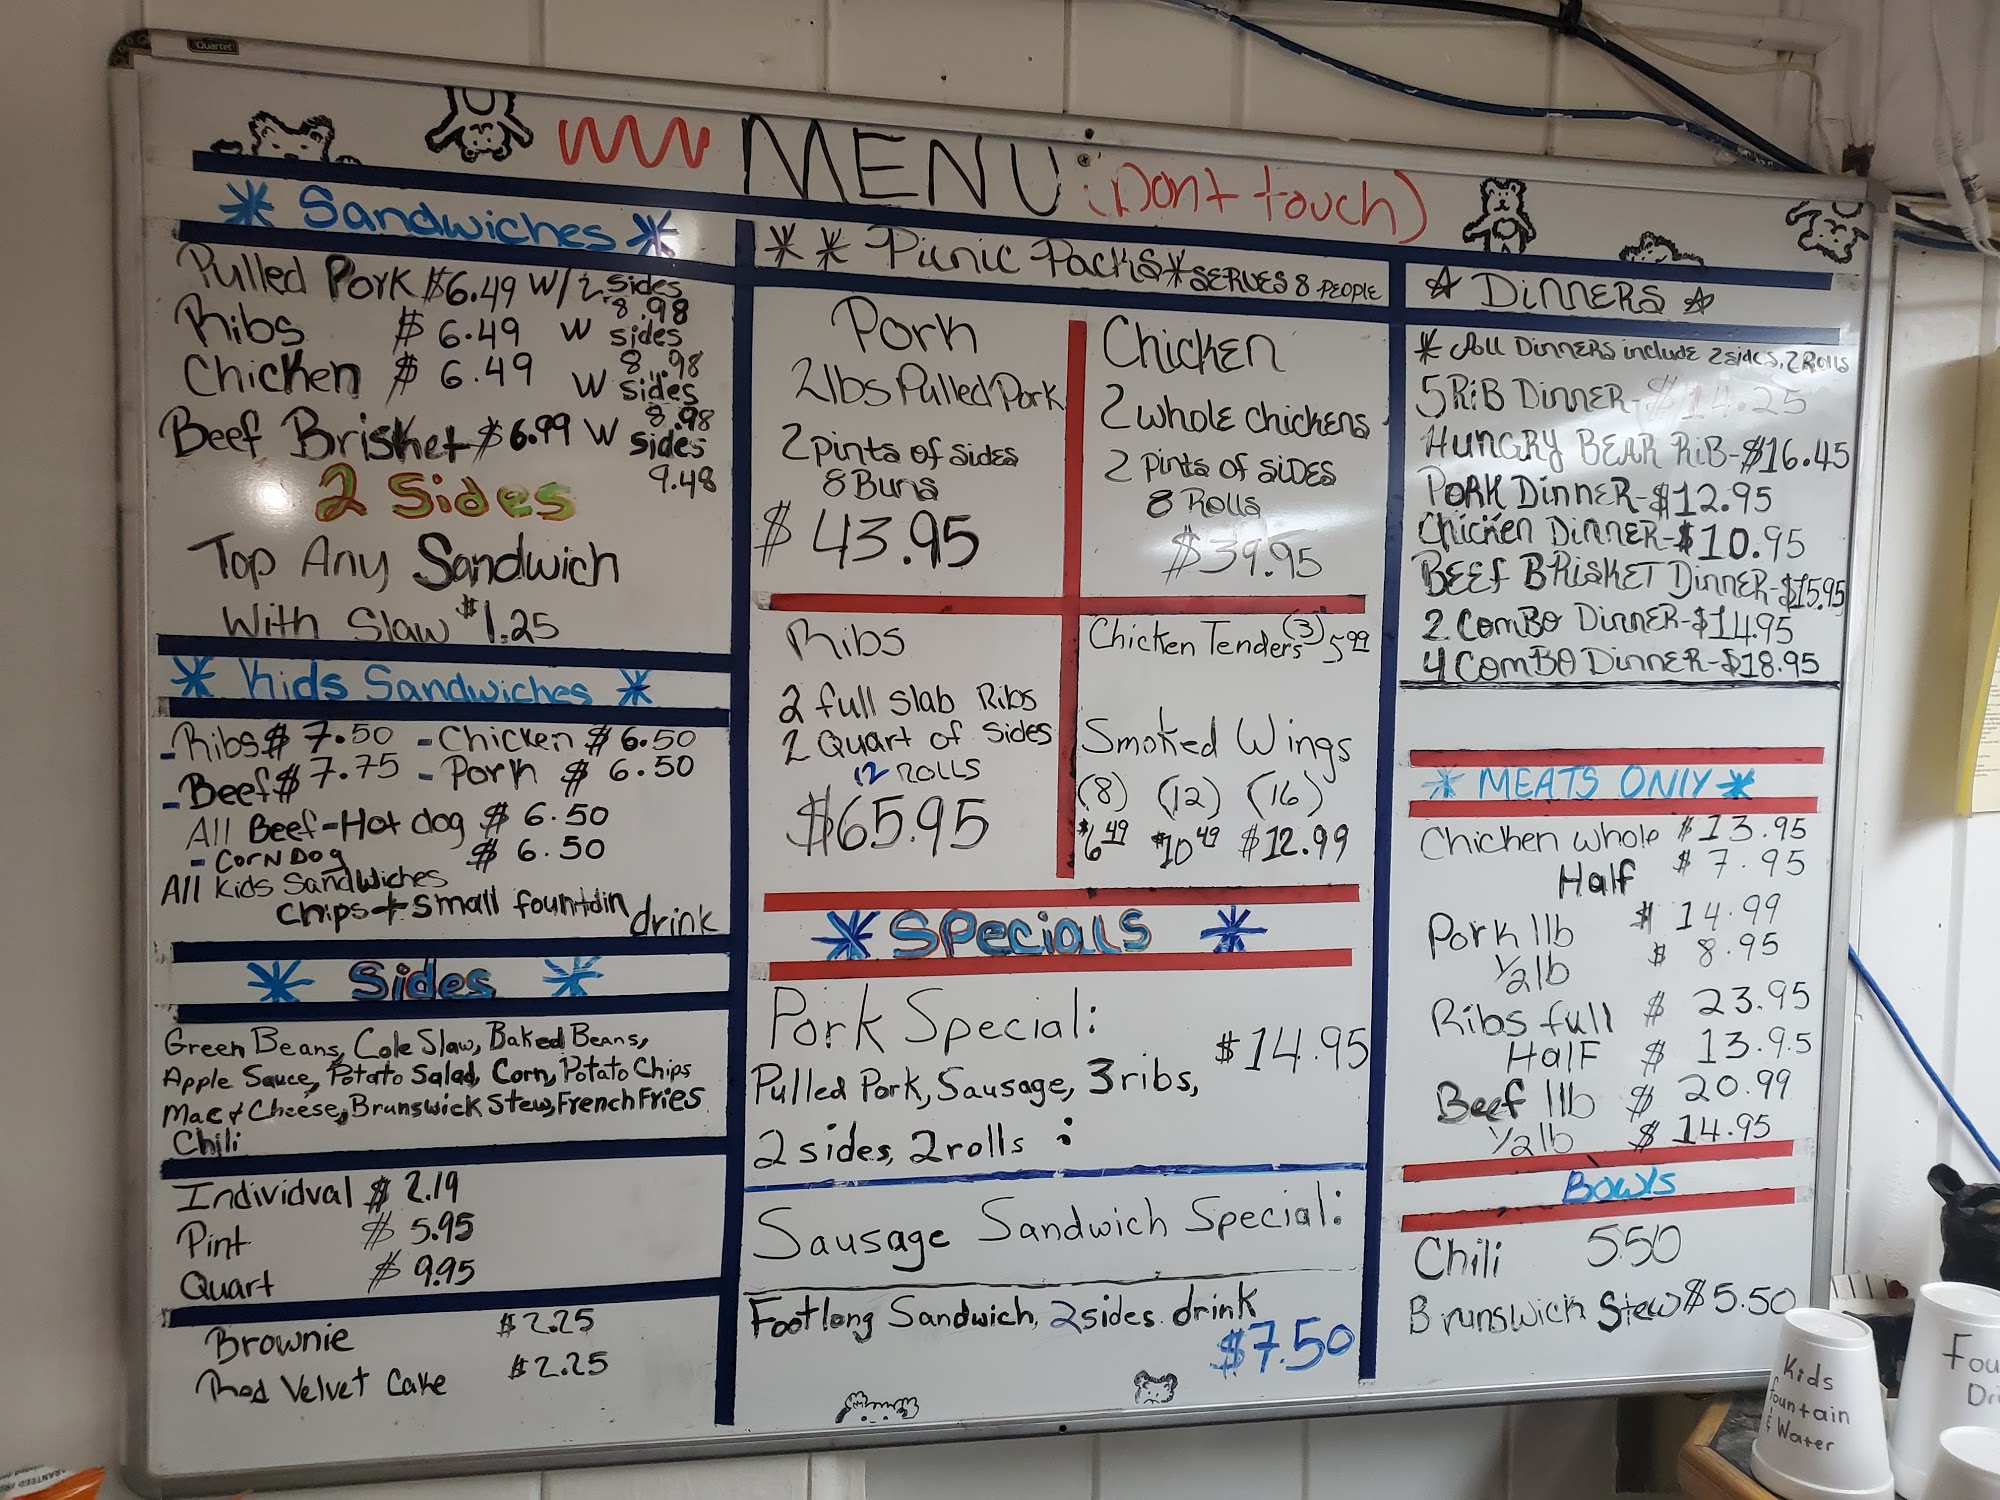 Quartet
MENU: (Dont touch)
Sandwiches
Pulled Pork $6.49 W/2 sides
8.98
Ribs $ 6.49 W sides
8.98
Chicken $ 6.49 W sides
8.98
Beef Brisket $6.99 W sides
9.48
2 Sides
Top Any Sandwich
With Slaw $1.25
Kids Sandwiches
-Ribs $ 7.50 -Chicken $ 6.50
-Beef $ 7.75 -Pork $ 6.50
All Beef-Hot dog $ 6.50
-CORN DOg $ 6.50
All Kids Sandwiches
Chips + small fountain drink
Sides
Green Beans, Cole Slaw, Baked Beans,
Apple Sauce, Potato Salad, Corn, Potato Chips
Mac & Cheese, Brunswick Stew, French Fries
Chili
Individual $ 2.19
Pint $ 5.95
Quart $ 9.95
Brownie $2.25
Red Velvet Cake $2.25
** Picnic Packs * SERVES 8 PEOPLE
Pork
2lbs Pulled Pork
2 pints of sides
8 Buns
$ 43.95
Chicken
2 whole chickens
2 pints of sides
8 Rolls
$39.95
Ribs
2 full slab Ribs
2 Quart of Sides
12 Rolls
$65.95
Chicken Tenders (3) 5.99
Smoked Wings
(8) (12) (16)
$6.49 $10.49 $12.99
Specials
Pork Special:
$14.95
Pulled Pork, Sausage, 3 ribs,
2 sides, 2 rolls :
Sausage Sandwich Special:
Footlong Sandwich, 2 sides. drink
$7.50
DINNERS
* All Dinners include 2 sides, 2 Rolls
5 RiB Dinner-$14.25
HUNGRY BEAR RiB-$16.45
PORK Dinner-$12.95
Chicken Dinner-$10.95
BEEf BRISKET Dinner-$15.95
2 ComBO Dinner-$14.95
4 ComBO Dinner-$18.95
MEATS ONLY
Chicken whole $13.95
Half $ 7.95
Pork 1lb $ 14.99
1/2lb $ 8.95
Ribs full $ 23.95
Half $ 13.9.5
Beef 1lb $ 20.99
1/2lb $ 14.95
Bowls
Chili 5.50
Brunswick Stew $5.50
Kids
fountain
& Water